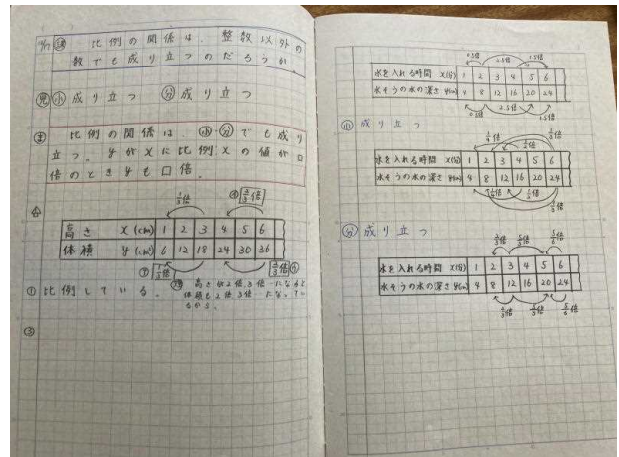 課 比例の関係は、整数以外の
数でも成り立つのだろうか。
見 小 成り立つ 分 成り立つ
ま 比例の関係は、小・分でも成り
立つ。yがxに比例xの値が□
倍のときyも□倍。
1/3倍 2/3倍
高さ x(cm) 1 2 3 4 5 6
体積 y(cm) 6 12 18 24 30 36
1/3倍 2/3倍
① 比例している。 理 高さが2倍、3倍…になると
体積も2倍3倍…になってい
るから。
③
0.5倍 2.5倍 1.5倍
水を入れる時間 x(分) 1 2 3 4 5 6
水そうの水の深さ y(cm) 4 8 12 16 20 24
0.5倍 2.5倍 1.5倍
小 成り立つ
水を入れる時間 x(分) 1 2 3 4 5 6
水そうの水の深さ y(cm) 4 8 12 16 20 24
分 成り立つ
2/3倍 5/3倍 5/6倍
水を入れる時間 x(分) 1 2 3 4 5 6
水そうの水の深さ y(cm) 4 8 12 16 20 24
2/3倍 5/3倍 5/6倍